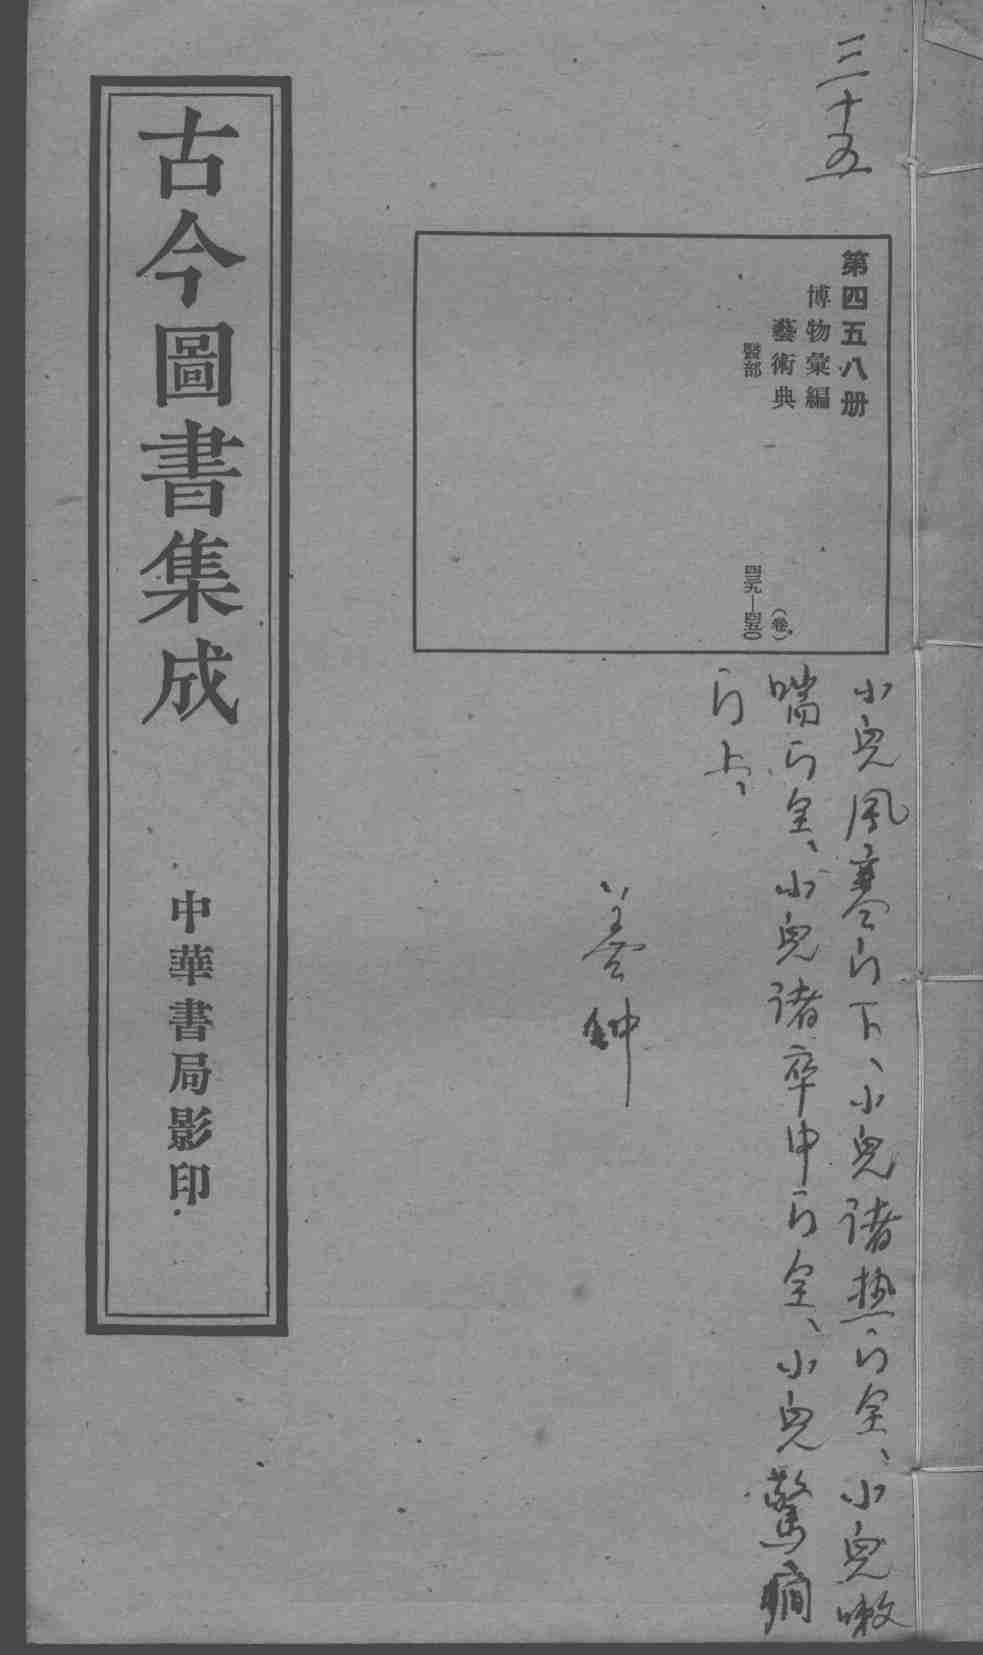 三十五
第四五八册
博物彙編
藝術典
醫部
(卷)
四三九—四五〇
小兒風寒门下、小兒諸热门全、小兒嗽
喘门全、小兒諸卒中门全、小兒驚癇
门上、
古今圖書集成
中華書局影印